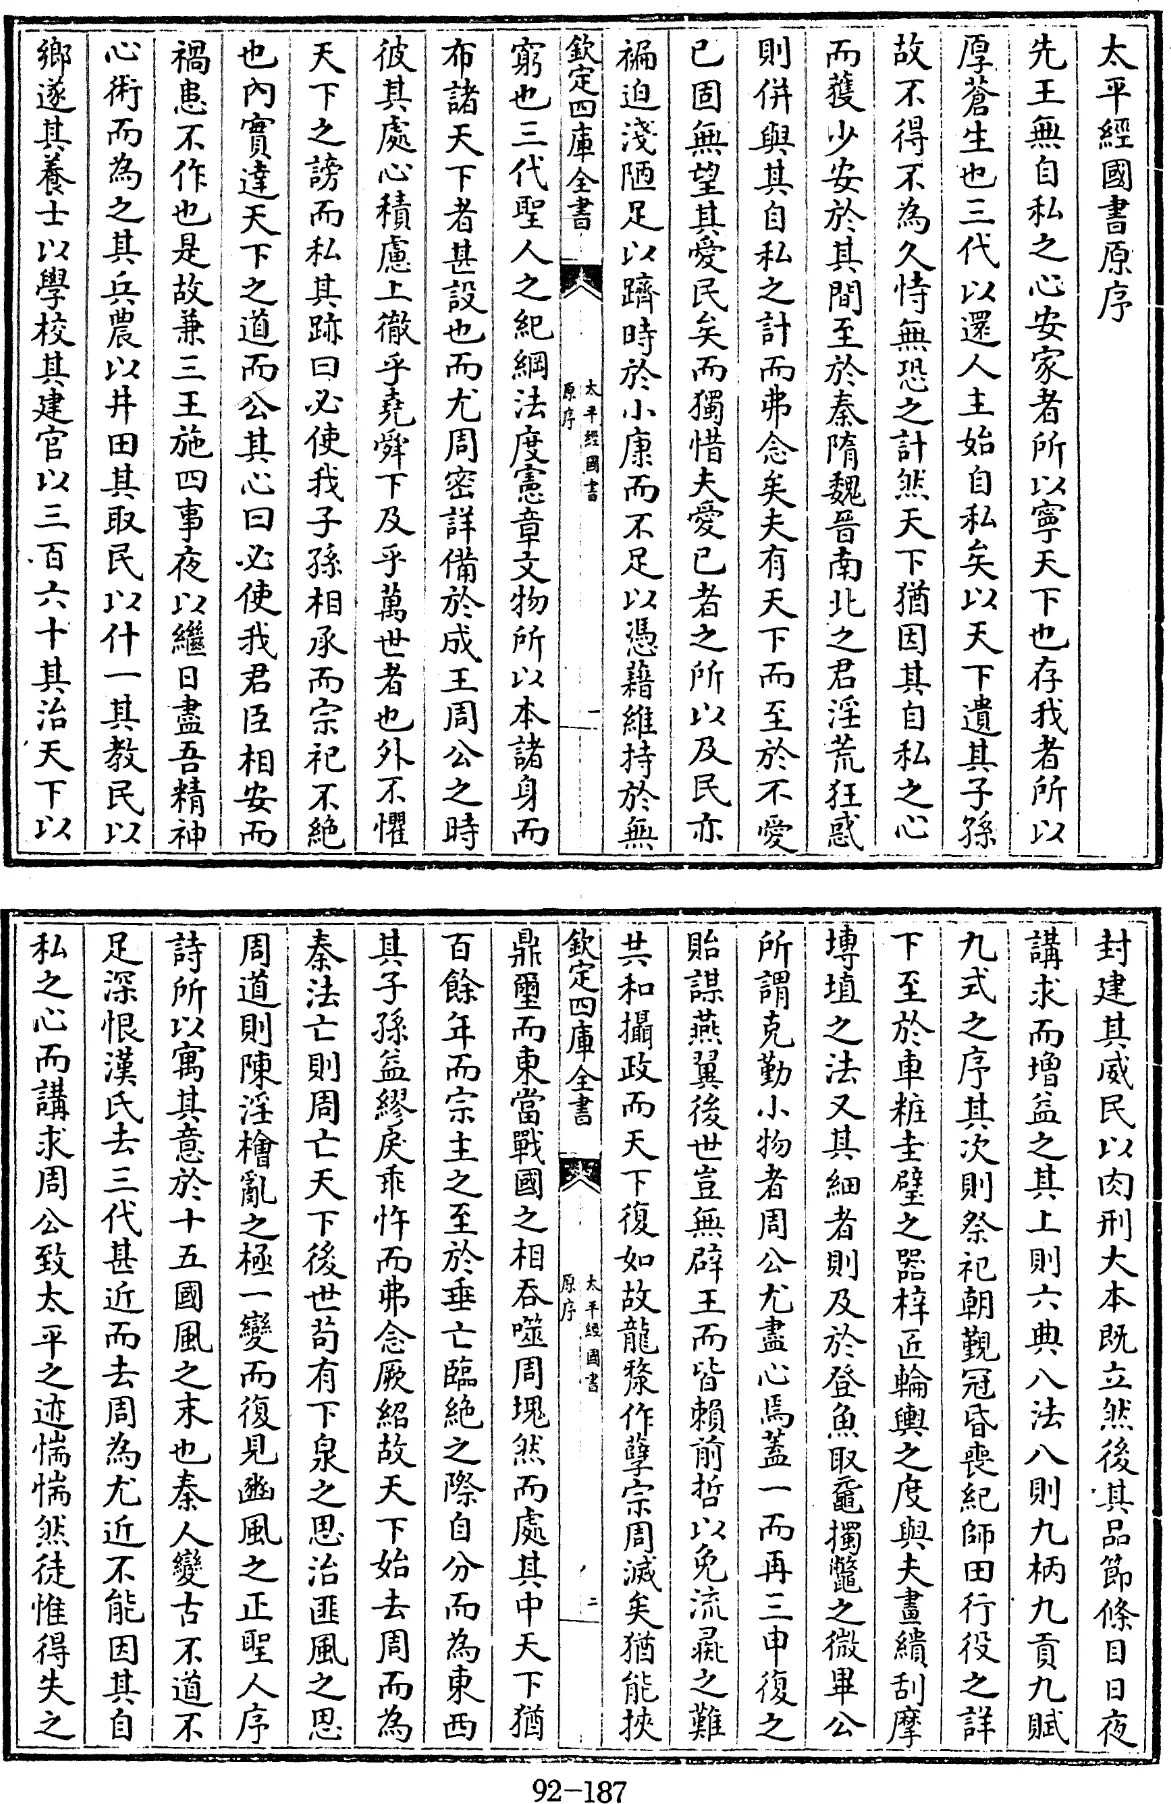 太平經國書原序
先王無自私之心安家者所以寧天下也存我者所以
厚蒼生也三代以還人主始自私矣以天下遺其子孫
故不得不為久恃無恐之計然天下猶因其自私之心
而獲少安於其間至於秦隋魏晉南北之君淫荒狂惑
則併與其自私之計而弗念矣夫有天下而至於不愛
已固無望其愛民矣而獨惜夫愛已者之所以及民亦
褊迫淺陋足以躋時於小康而不足以憑藉維持於無
欽定四庫全書
太平經國書
原序
一
窮也三代聖人之紀綱法度憲章文物所以本諸身而
布諸天下者甚設也而尤周密詳備於成王周公之時
彼其處心積慮上徹乎堯舜下及乎萬世者也外不懼
天下之謗而私其跡曰必使我子孫相承而宗祀不絶
也內實達天下之道而公其心曰必使我君臣相安而
禍患不作也是故兼三王施四事夜以繼日盡吾精神
心術而為之其兵農以井田其取民以什一其教民以
鄉遂其養士以學校其建官以三百六十其治天下以
封建其威民以肉刑大本既立然後其品節條目日夜
講求而增益之其上則六典八法八則九柄九貢九賦
九式之序其次則祭祀朝覲冠昏喪紀師田行役之詳
下至於車粧圭璧之器梓匠輪輿之度與夫畫繢刮摩
塼埴之法又其細者則及於登魚取黿擉鼈之微畢公
所謂克勤小物者周公尤盡心焉蓋一而再三申復之
貽謀燕翼後世豈無辟王而皆賴前哲以免流彘之難
共和攝政而天下復如故龍漦作孽宗周滅矣猶能挾
欽定四庫全書
太平經國書
原序
二
鼎璽而東當戰國之相吞噬周塊然而處其中天下猶
百餘年而宗主之至於垂亡臨絶之際自分而為東西
其子孫益繆戾乖忤而弗念厥紹故天下始去周而為
秦法亡則周亡天下後世苟有下泉之思治匪風之思
周道則陳淫檜亂之極一變而復見豳風之正聖人序
詩所以寓其意於十五國風之末也秦人變古不道不
足深恨漢氏去三代甚近而去周為尤近不能因其自
私之心而講求周公致太平之迹惴惴然徒惟得失之
92-187